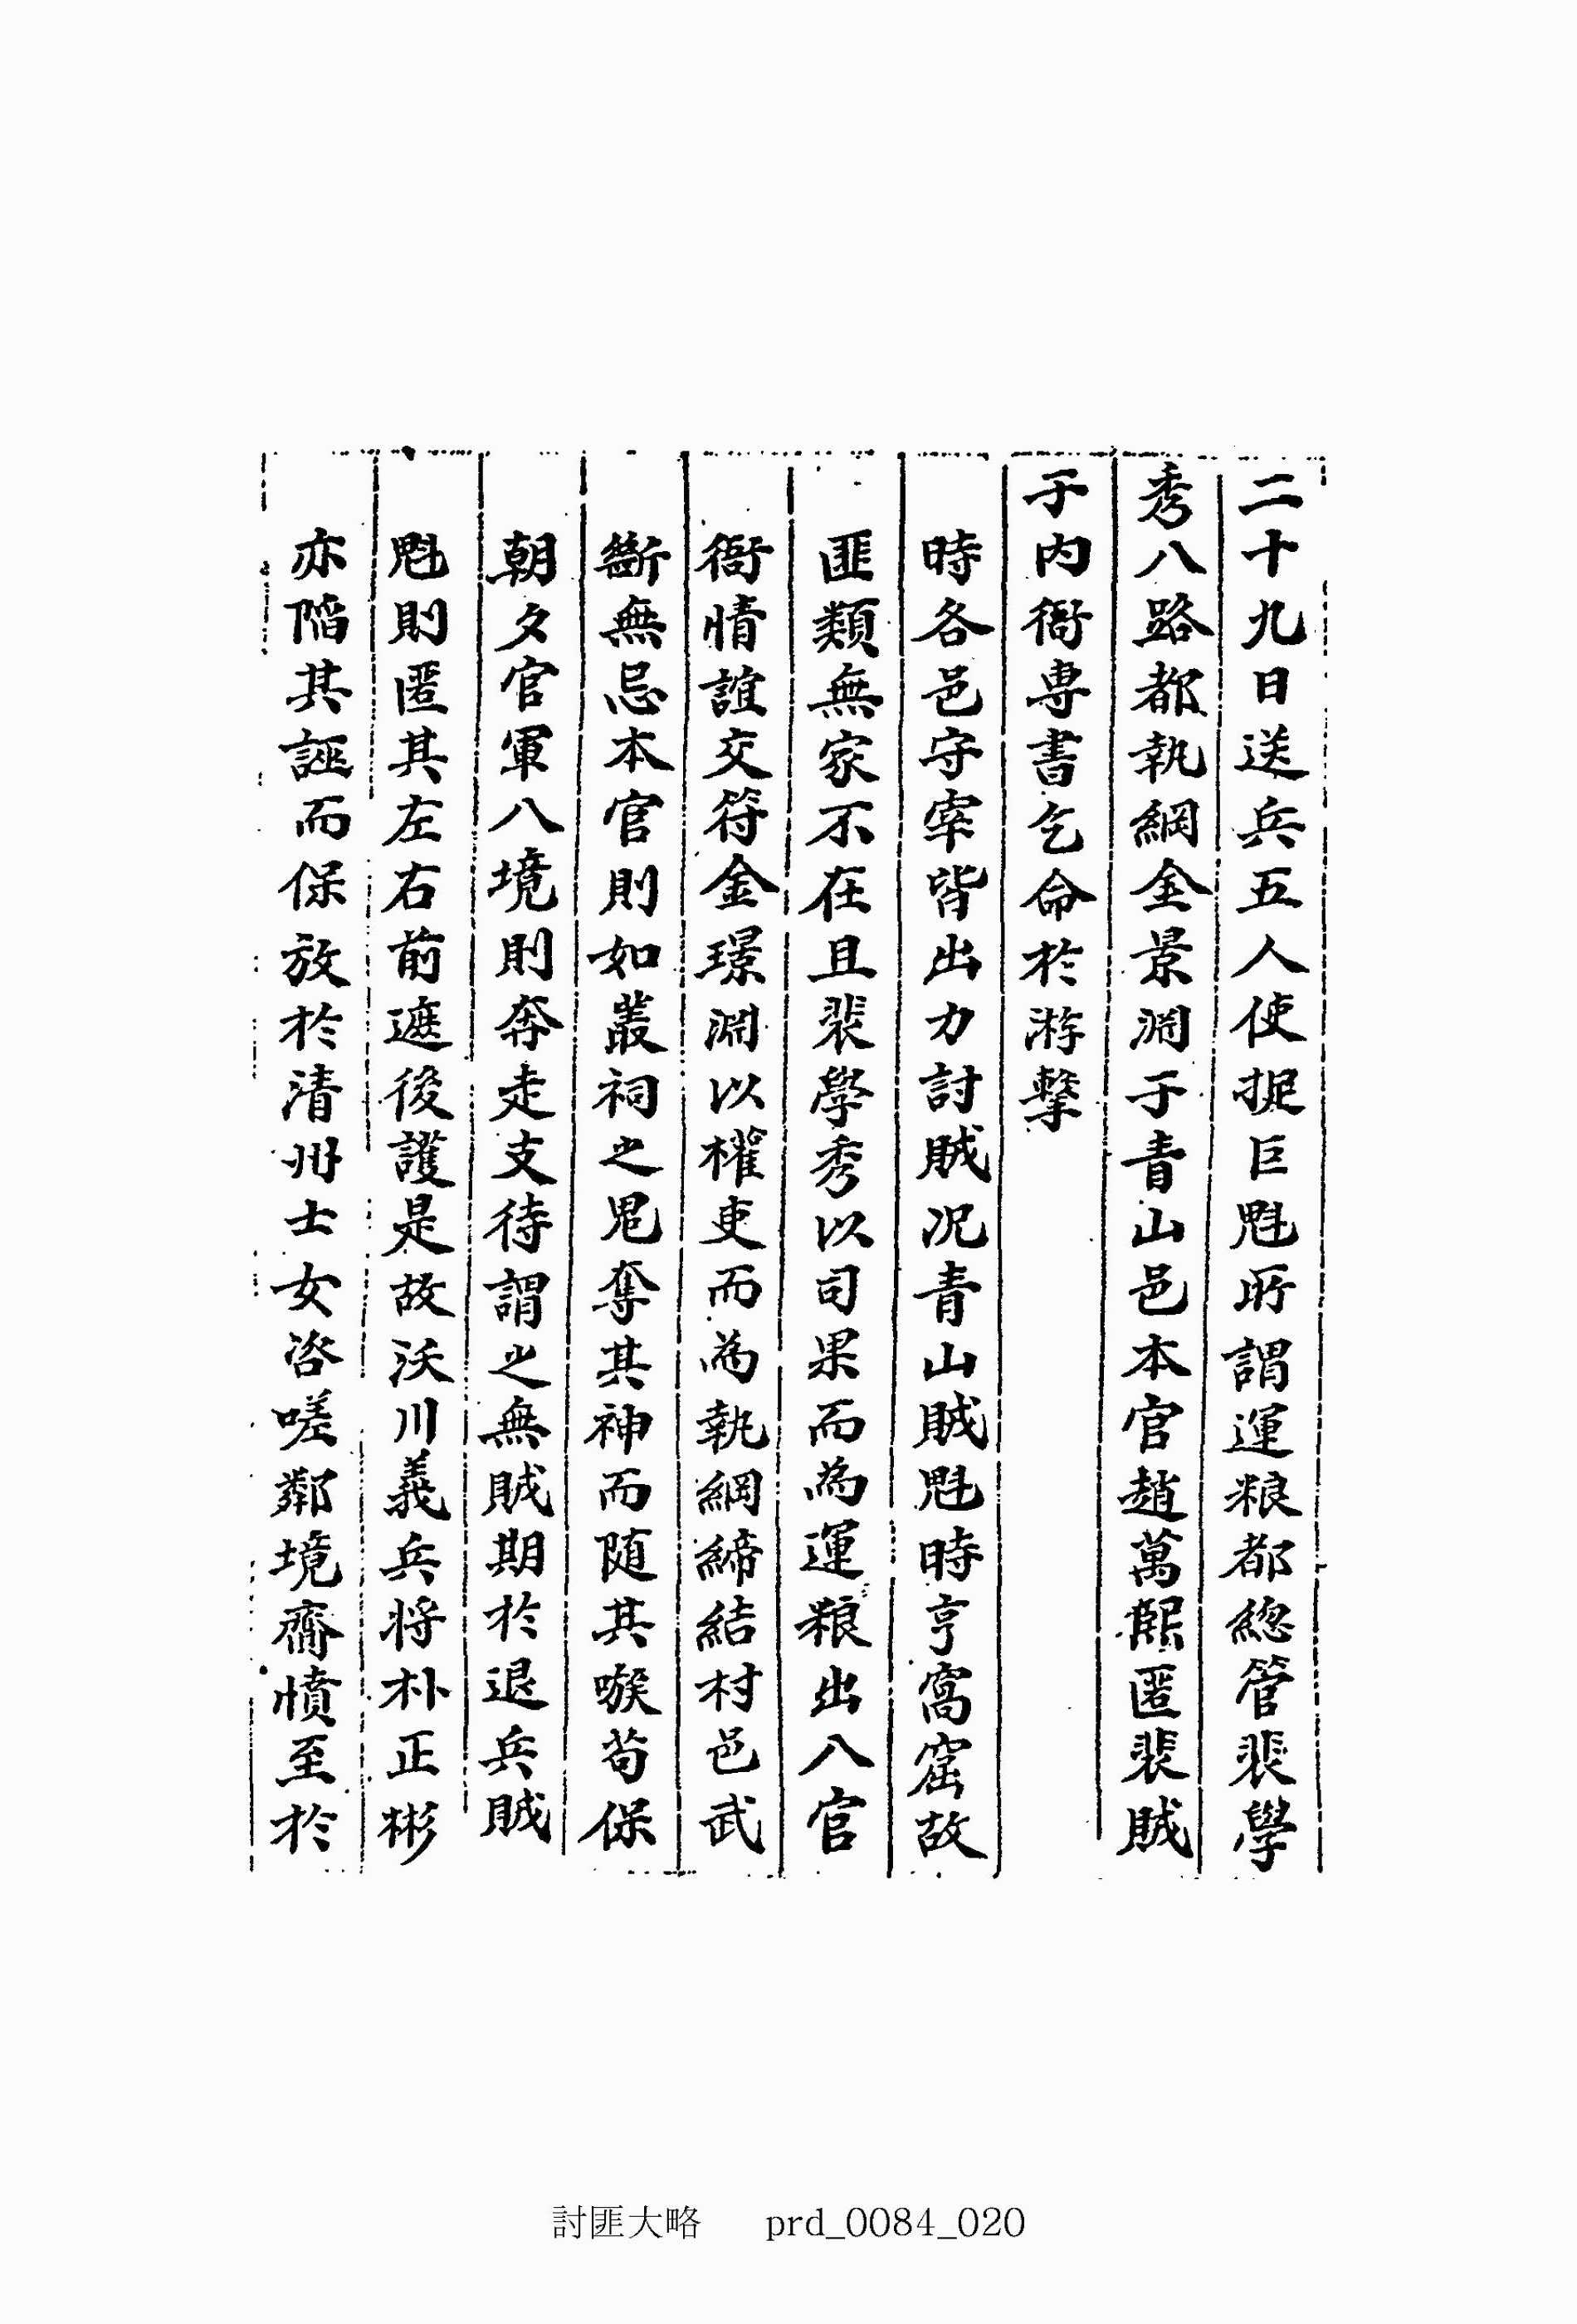 二十九日送兵五人使捉巨魁所謂運粮都總管裴學
秀八路都執綱金景淵于青山邑本官趙萬熙匿裴賊
于内衙專書乞命於游擊
時各邑守宰皆出力討賊况青山賊魁時亨窩窟故
匪類無家不在且裴學秀以司果而為運粮出入官
衙情誼交符金璟淵以權吏而為執綱締結村邑武
斷無忌本官則如叢祠之鬼奪其神而随其喉苟保
朝夕官軍入境則奔走支待謂之無賊期於退兵賊
魁則匿其左右前遮後護是故沃川義兵将朴正彬
亦陷其誣而保放於清州士女咨嗟鄰境齎憤至於
討匪大略 prd_0084_020